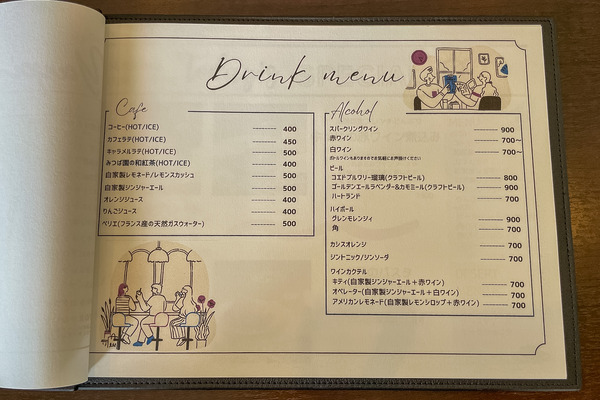 Drink menu
Cafe
コーヒー(HOT/ICE) 400
カフェラテ(HOT/ICE) 450
キャラメルラテ(HOT/ICE) 500
みつば園の和紅茶(HOT/ICE) 400
自家製レモネード/レモンスカッシュ 500
自家製ジンジャーエール 500
オレンジジュース 400
りんごジュース 400
ペリエ(フランス産の天然ガスウォーター) 500
Alcohol
スパークリングワイン 900
赤ワイン 700〜
白ワイン 700〜
ボトルワインもありますのでお気軽にお声掛けください
ビール
コエドブルワリー瑠璃(クラフトビール) 800
ゴールデンエールラベンダー&カモミール(クラフトビール) 900
ハートランド 700
ハイボール
グレンモレンジィ 900
角 700
カシスオレンジ 700
ジントニック/ジンソーダ 700
ワインカクテル
キティ(自家製ジンジャーエール+赤ワイン) 700
オペレーター(自家製ジンジャーエール+白ワイン) 700
アメリカンレモネード(自家製レモンシロップ+赤ワイン) 700